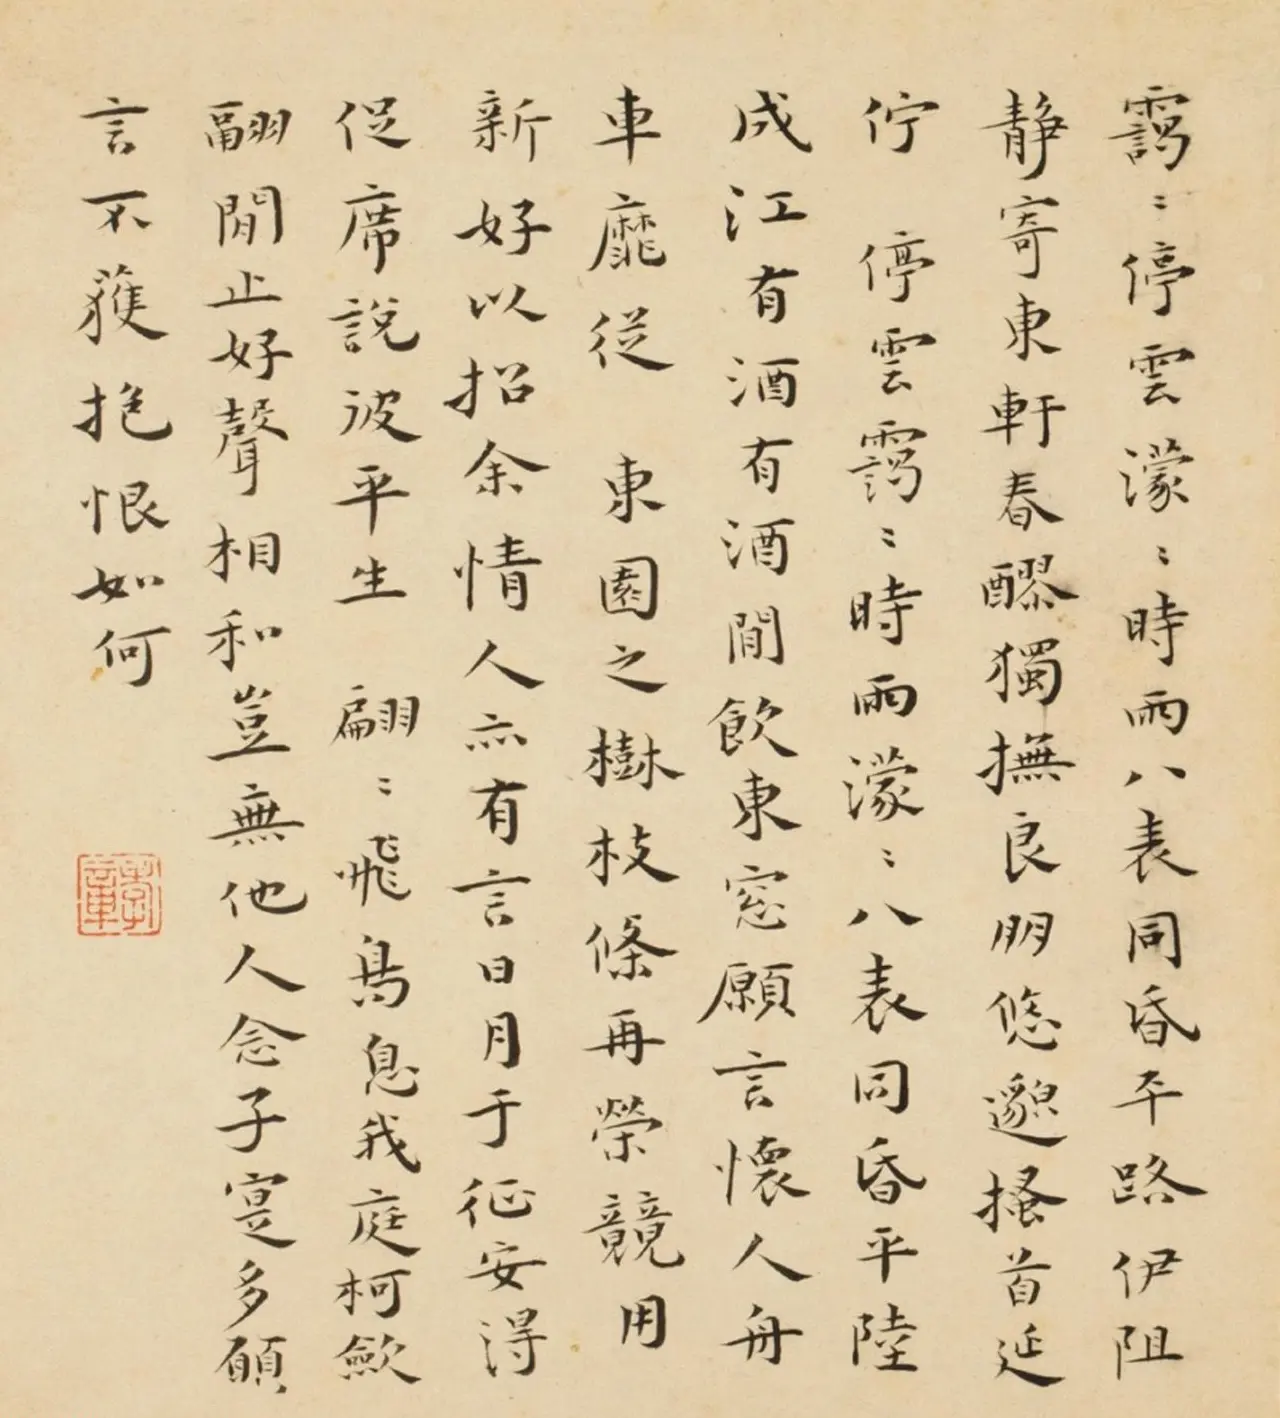 靄〻停雲濛〻時雨八表同昏平路伊阻
静寄東軒春醪獨撫良朋悠邈搔首延
佇　停雲靄〻時雨濛〻八表同昏平陸
成江有酒有酒閒飲東窓願言懷人舟
車靡從　東園之樹枝條再榮競用
新好以招余情人亦有言日月于征安得
促席說彼平生　翩〻飛鳥息我庭柯斂
翮閒止好聲相和豈無他人念子寔多願
言不獲抱恨如何